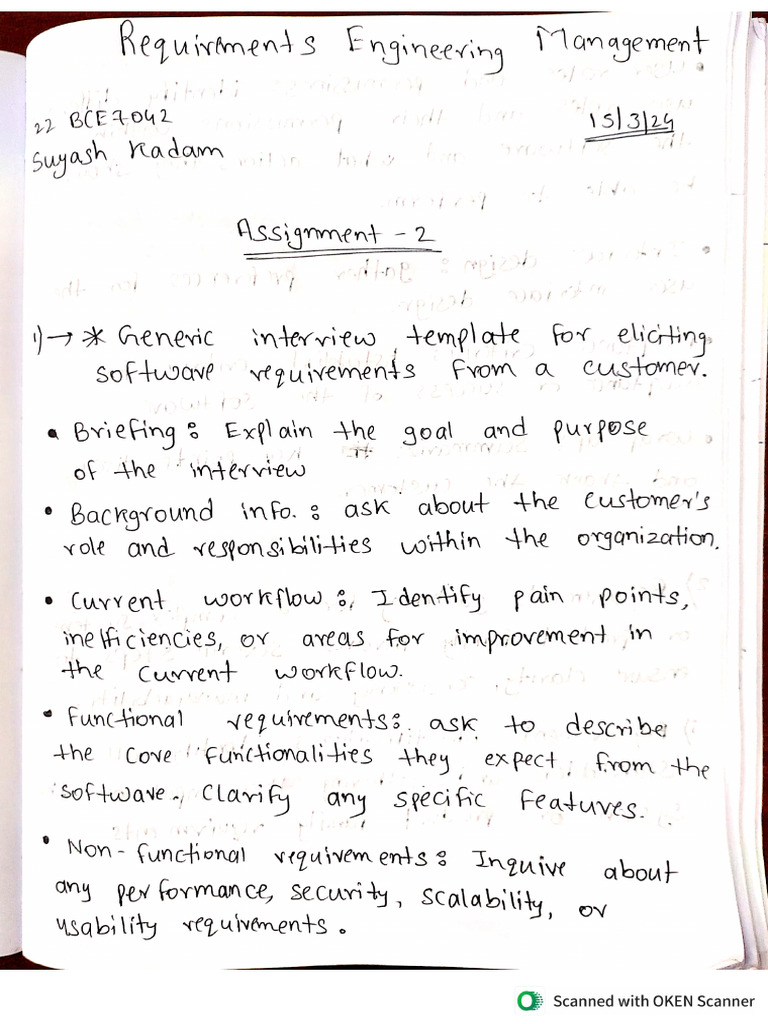 Requirements Engineering Management
22 BCE7042
15/3/24
Suyash Kadam
Assignment - 2
1) → * Generic interview template for eliciting
software requirements from a customer.
• Briefing : Explain the goal and purpose
of the interview
• Background info. : ask about the customer's
role and responsibilities within the organization.
• Current workflow : Identify pain points,
inefficiencies, or areas for improvement in
the current workflow.
• Functional requirements : ask to describe
the core functionalities they expect from the
software. Clarify any specific features.
• Non-functional requirements : Inquire about
any performance, security, scalability, or
usability requirements.
Scanned with OKEN Scanner